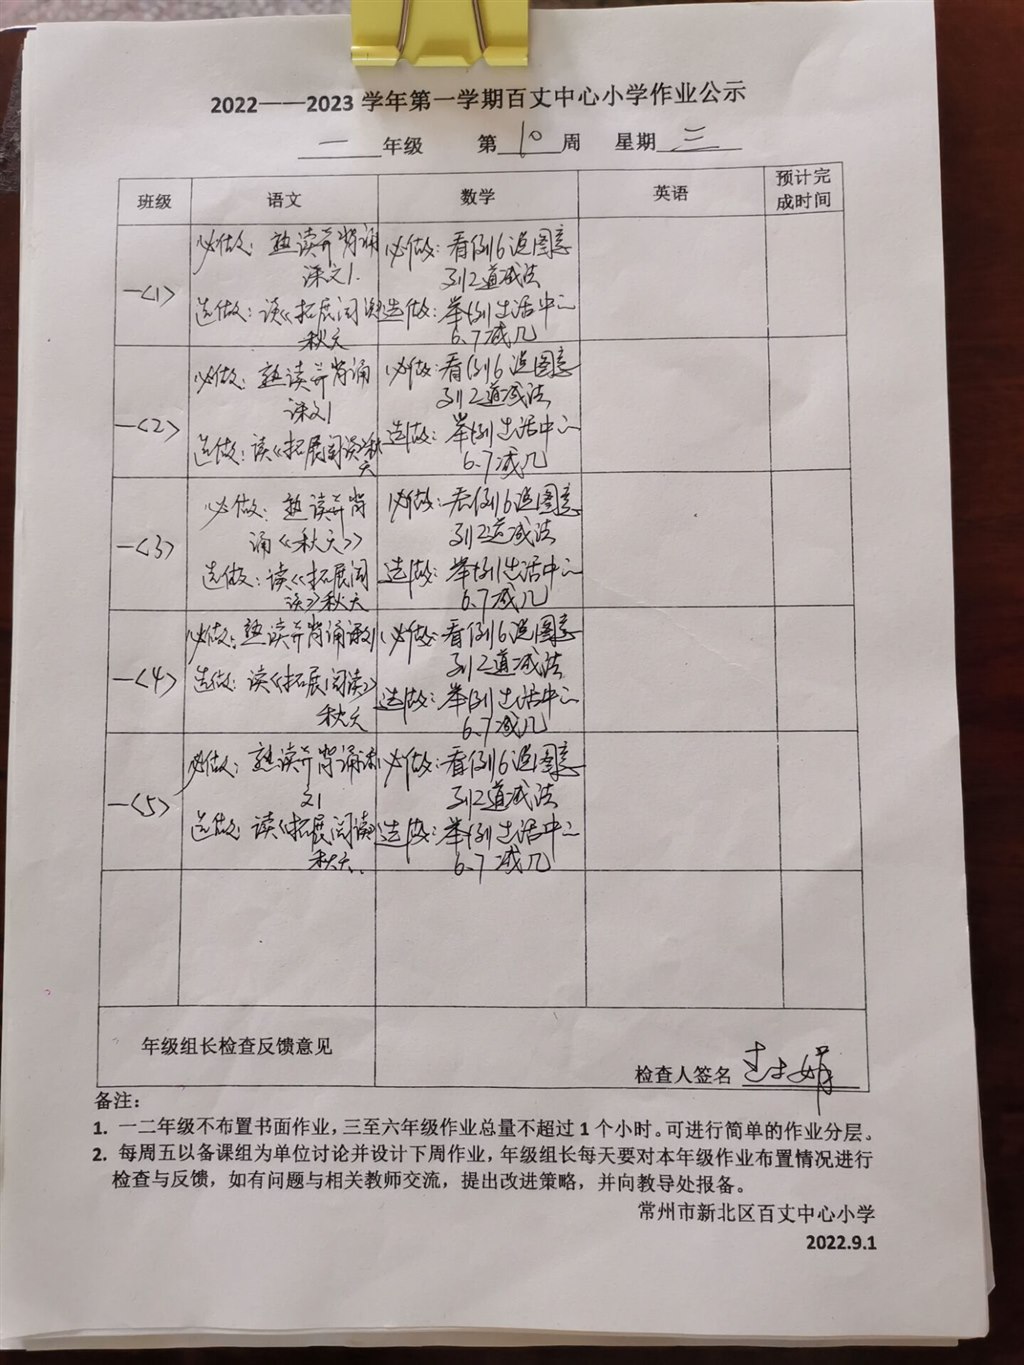 2022——2023 学年第一学期百丈中心小学作业公示
一 年级 第 10 周 星期 三
班级 语文 数学 英语 预计完成时间
一<1>
必做：熟读并背诵
课文1.
选做：读《拓展阅读》
秋天
必做：看例6说图意
列2道减法
选做：举例生活中
6.7减几
一<2>
必做：熟读并背诵
课文1
选做：读《拓展阅读》秋
天
必做：看例6说图意
列2道减法
选做：举例生活中
6.7减几
一<3>
必做：熟读并背
诵《秋天》
选做：读《拓展阅
读》秋天
必做：看例6说图意
列2道减法
选做：举例生活中
6.7减几
一<4>
必做：熟读并背诵课文1
选做：读《拓展阅读》
秋天
必做：看例6说图意
列2道减法
选做：举例生活中
6.7减几
一<5>
必做：熟读并背诵课
文1
选做：读《拓展阅读》
秋天.
必做：看例6说图意
列2道减法
选做：举例生活中
6.7减几
年级组长检查反馈意见
检查人签名
备注：
1. 一二年级不布置书面作业，三至六年级作业总量不超过 1 个小时。可进行简单的作业分层。
2. 每周五以备课组为单位讨论并设计下周作业，年级组长每天要对本年级作业布置情况进行
检查与反馈，如有问题与相关教师交流，提出改进策略，并向教导处报备。
常州市新北区百丈中心小学
2022.9.1